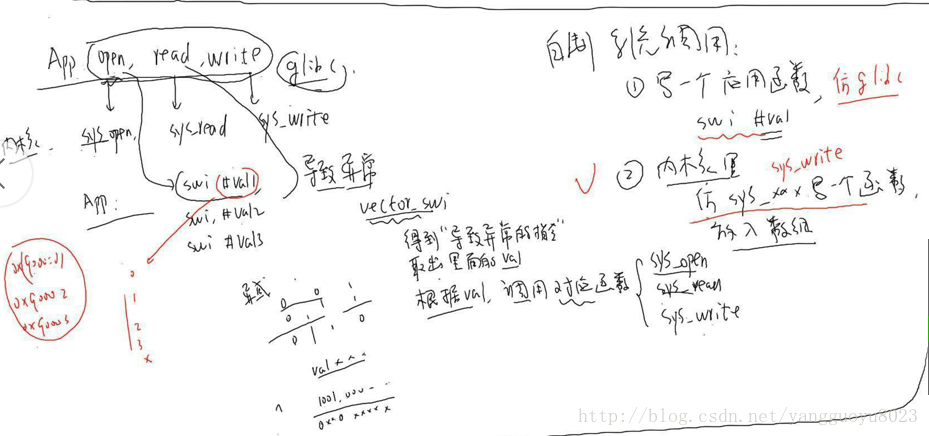 App open, read, write glibc.
sys_open, sys_read sys_write
内核
App: swi #val1 导致异常
swi, #val2
swi #val3
vector_swi
得到"导致异常的指令"
取出里面的val
根据val, 调用对应函数
sys_open
sys_read
sys_write
0
1
2
3
x
异或
0 1
0 1
val x x x
1001,000
自制系统调用:
① 写一个应用函数, 仿glibc
swi #val
② 内核里 sys_write
仿 sys_xxx 写一个函数,
放入数组
http://blog.csdn.net/yangguoyu8023